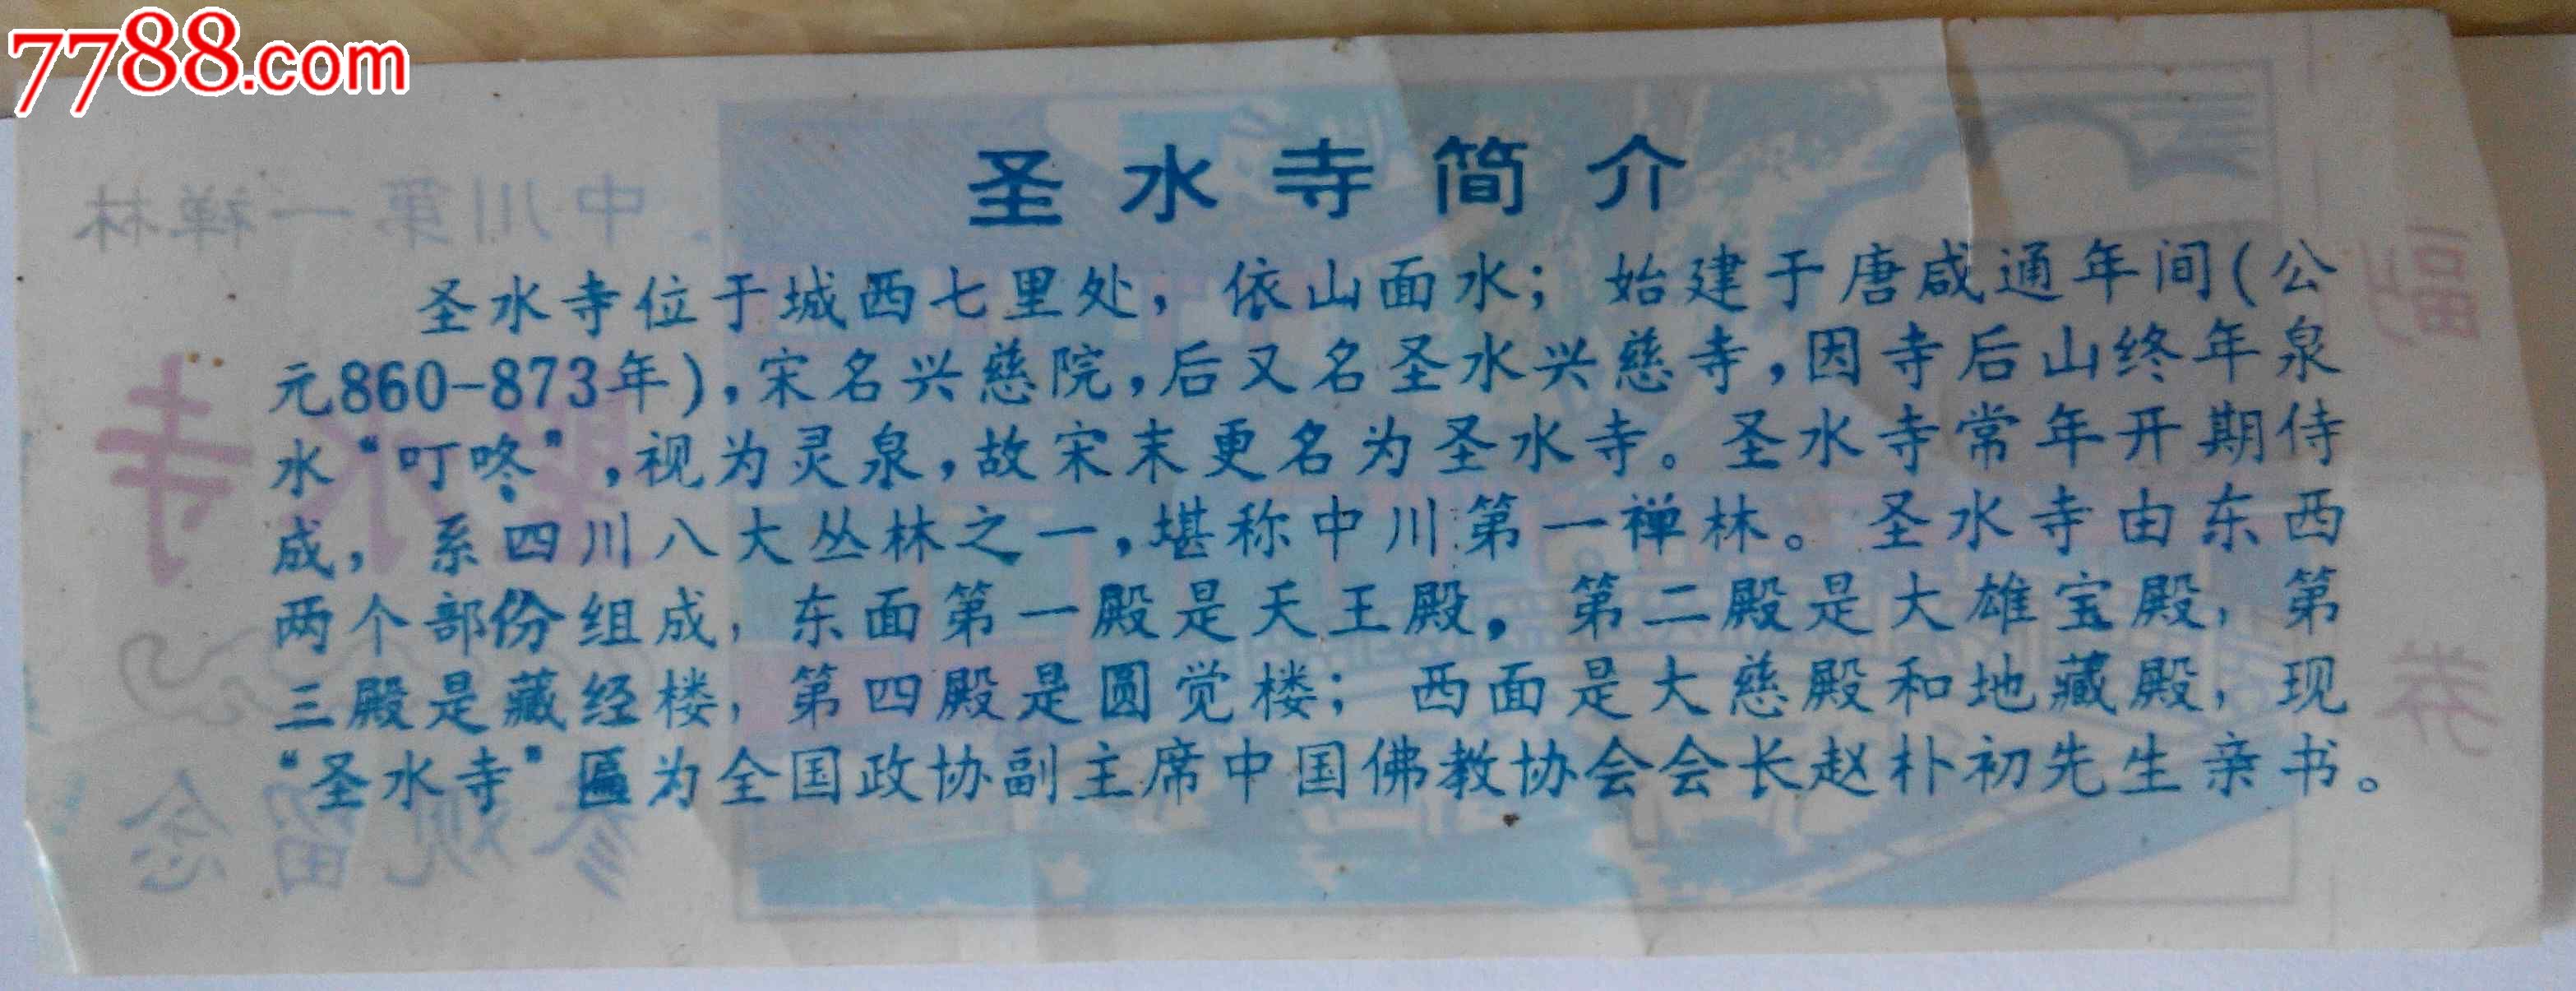 7788.com
圣水寺简介
圣水寺位于城西七里处，依山面水；始建于唐咸通年间(公
元860-873年)，宋名兴慈院，后又名圣水兴慈寺，因寺后山终年泉
水“叮咚”，视为灵泉，故宋末更名为圣水寺。圣水寺常年开期侍
成，系四川八大丛林之一，堪称中川第一禅林。圣水寺由东西
两个部份组成，东面第一殿是天王殿，第二殿是大雄宝殿，第
三殿是藏经楼，第四殿是圆觉楼；西面是大慈殿和地藏殿，现
“圣水寺”匾为全国政协副主席中国佛教协会会长赵朴初先生亲书。
中川第一禅林
圣水寺
参观留念
副
券